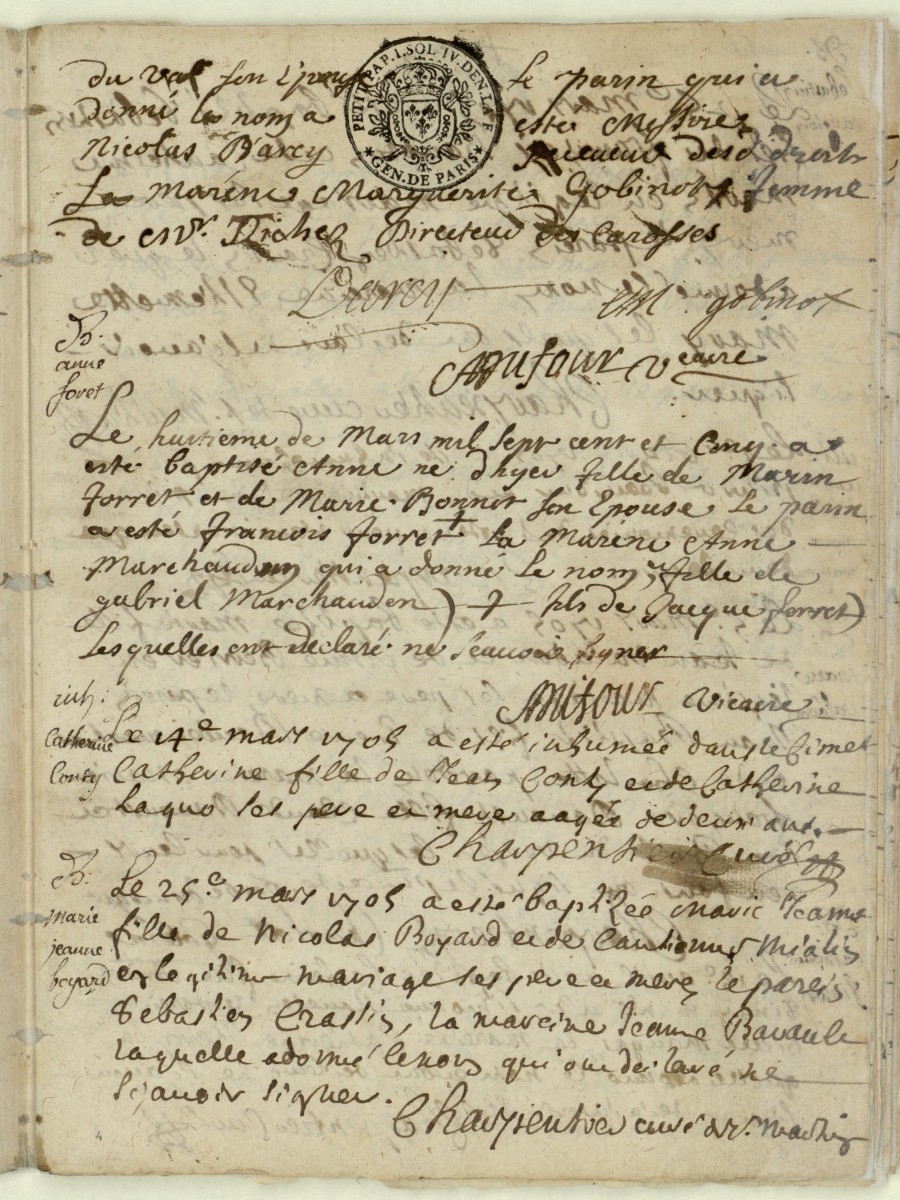 du Val son Epouse le parin qui a
donné le nom a esté Messire
Nicolas Darcy receveur des droits
PETIT PAP. I. SOL IV. DEN. LA F.
GEN. DE PARIS
La Marene Marguerite Gobinot femme
de Mr. Directeur des Carosses
Darcy M gobinot
Mitour Vicaire
B.
anne
foret
Le huitieme de Mars mil sept cent et Cinq a
esté baptisé Anne ne d'hyer fille de Marin
forret et de Marie Bonnot son Epouse le parin
a esté francois forret + La Marene Anne
Marchauden qui a donne le nom, fille de
gabriel Marchauden) + fils de Jacque forret)
Lesquelles ont declaré ne scauoir signer
Mitour Vicaire
inh:
Catherine
Conty
Le 14e mars 1705 a esté inhumée dans le Cimet
Catherine fille de Jean Conty et de Catherine
Laquo ses pere et mere aagée de deux ans.
Charpentier Curé
B.
Marie
jeanne
bogard
Le 25e mars 1705 a esté baptizée marie Jeanne
fille de Nicolas Bogard et de
en legitime mariage ses pere et mere, le parein
Sebastien Crastin, la mareine Jeanne
laquelle a donné le nom qui ont declaré ne
sçauoir signer.
Charpentier curé de St. Mathin